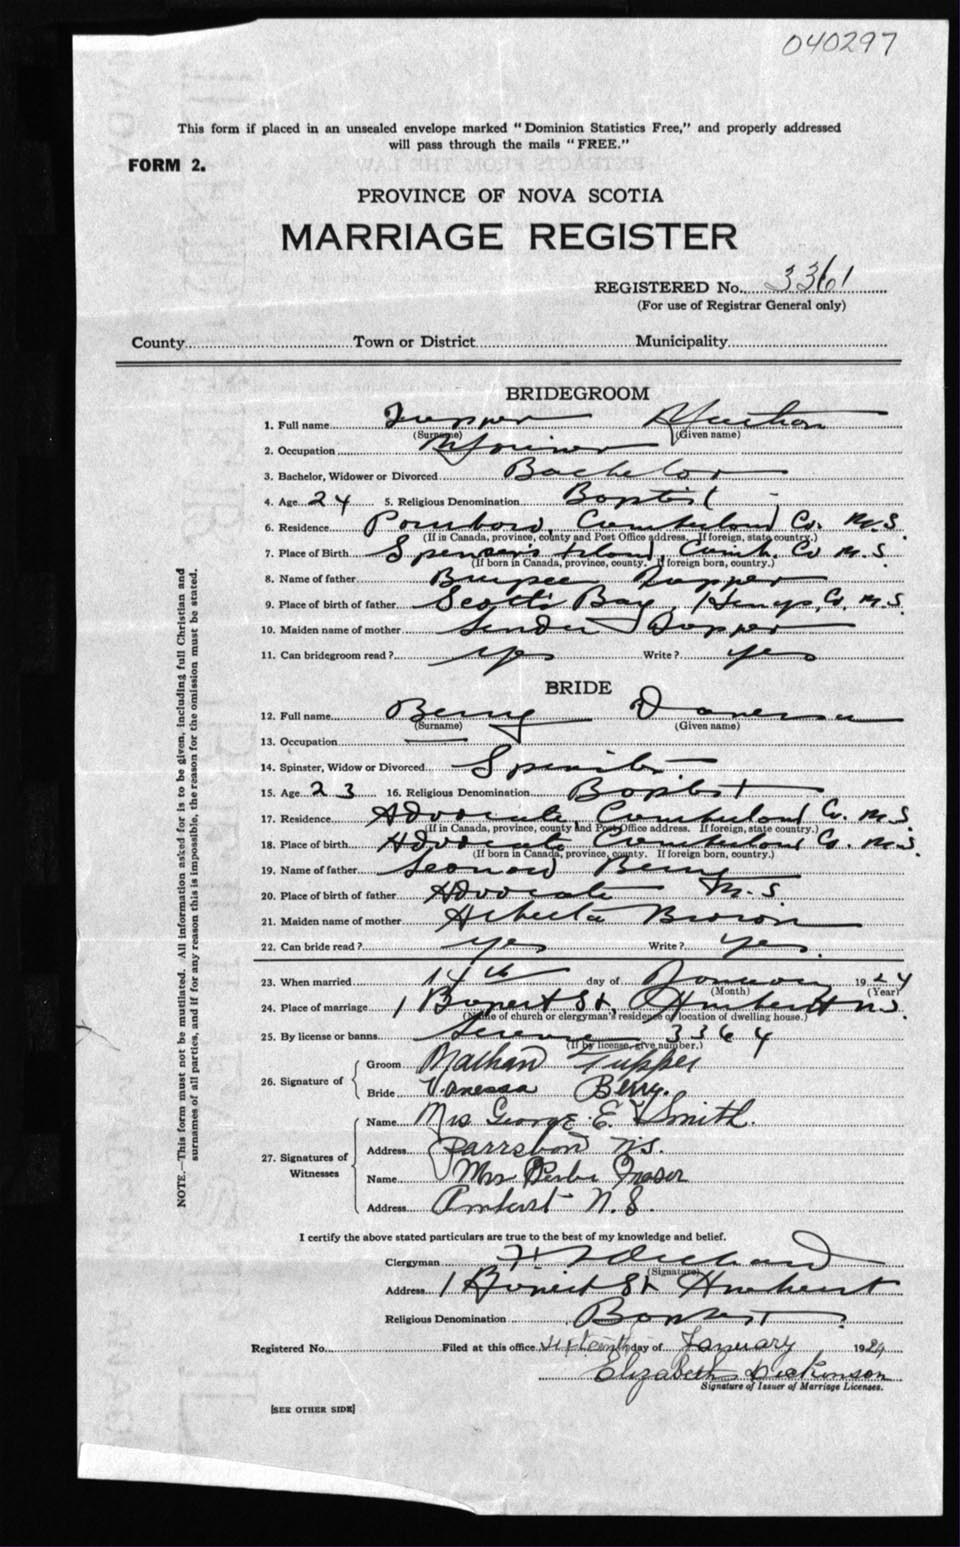 040297
This form if placed in an unsealed envelope marked "Dominion Statistics Free," and properly addressed
will pass through the mails "FREE."
FORM 2.
PROVINCE OF NOVA SCOTIA
MARRIAGE REGISTER
REGISTERED No. 3361
(For use of Registrar General only)
County Town or District Municipality
BRIDEGROOM
1. Full name Tupper
(Surname) (Given name)
2. Occupation
3. Bachelor, Widower or Divorced Bachelor
4. Age 24 5. Religious Denomination Baptist
6. Residence Cumberland Co. N.S.
(If in Canada, province, county and Post Office address. If foreign, state country.)
7. Place of Birth Spenser's Island, Cumb. Co N.S.
(If born in Canada, province, county. If foreign born, country.)
8. Name of father Burpee Tupper
9. Place of birth of father Scott's Bay, Kings Co. N.S.
10. Maiden name of mother Tupper
11. Can bridegroom read? yes Write? yes
BRIDE
12. Full name Berry
(Surname) (Given name)
13. Occupation
14. Spinster, Widow or Divorced Spinster
15. Age 23 16. Religious Denomination Baptist
17. Residence Advocate, Cumberland Co. N.S.
(If in Canada, province, county and Post Office address. If foreign, state country.)
18. Place of birth Advocate Cumberland Co. N.S.
(If born in Canada, province, county. If foreign born, country.)
19. Name of father Leonard Berry
20. Place of birth of father Advocate N.S.
21. Maiden name of mother Alberta Brown
22. Can bride read? yes Write? yes.
23. When married 14th day of January 1924
(Month) (Year)
24. Place of marriage 1 Rupert St, Amherst N.S.
(Name of church or clergyman's residence or location of dwelling house.)
25. By license or banns License 3364
(If by license, give number.)
26. Signature of
Groom Nathan Tupper
Bride Vanessa Berry.
27. Signatures of Witnesses
Name Mrs George E. Smith.
Address Parrsboro N.S.
Name Mrs Fraser
Address Amherst N.S.
I certify the above stated particulars are true to the best of my knowledge and belief.
Clergyman
(Signature)
Address 1 Rupert St Amherst
Religious Denomination Baptist
Registered No. Filed at this office sixteenth day of January 1924
Elizabeth Dickinson
Signature of Issuer of Marriage Licenses.
[SEE OTHER SIDE]
NOTE.—This form must not be mutilated. All information asked for is to be given, including full Christian and
surnames of all parties, and if for any reason this is impossible, the reason for the omission must be stated.